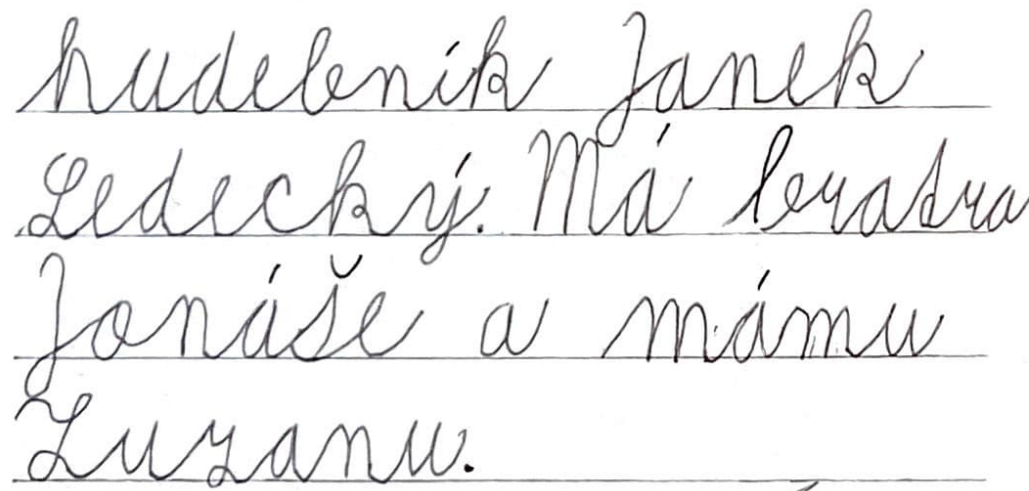 hudebník Janek
Ledecký. Má bratra
Jonáše a mámu
Zuzanu.